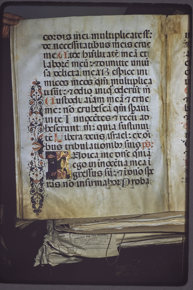 cordis mei multiplicata sūt
de necessitatibus meis erue
me Vide humilitatē meā et
laborē meū: et dimitte uniuer
sa delicta mea Respice ini
micos meos qm̄ multiplica
ti sūt: et odio iniquo oderūt me
Custodi aiam meā et erue
me: nō erubescā qm̄ spaui
in te Innocētes et recti ad
heserunt m̄: quia sustinui
te Libera deus israel: ex oī
bus tribulationibꝰ suis ps
Iudica me dn̄e qm̄
ego in inocētia mea ī
gressus sū: et ī dn̄o spe
rās nō infirmabor Proba